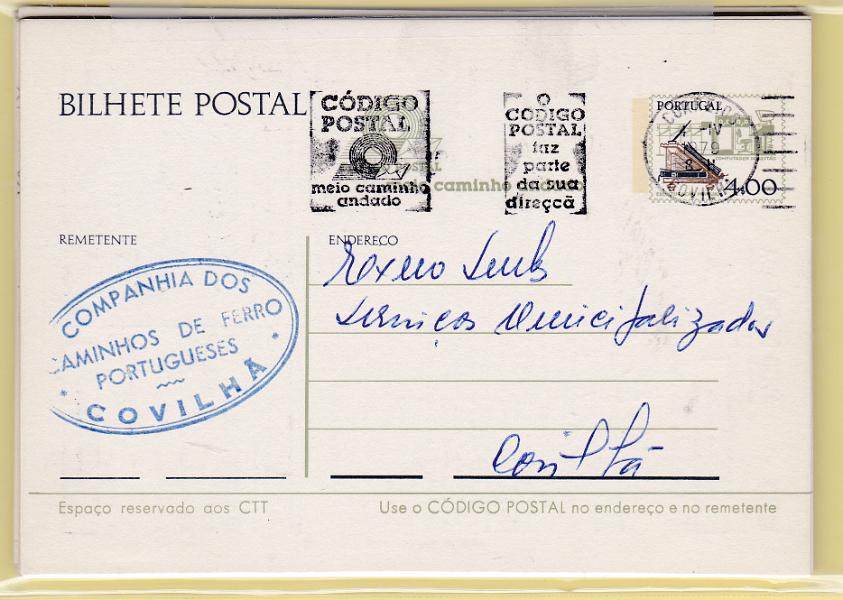 BILHETE POSTAL
CÓDIGO
POSTAL
meio caminho
andado
O
CODIGO
POSTAL
faz
parte
da sua
direçcã
PORTUGAL
4.00
COVILHÃ
REMETENTE
ENDEREÇO
COMPANHIA DOS
CAMINHOS DE FERRO
PORTUGUESES
COVILHÃ
Serviços Municipalizados
Covilhã
Espaço reservado aos CTT
Use o CÓDIGO POSTAL no endereço e no remetente